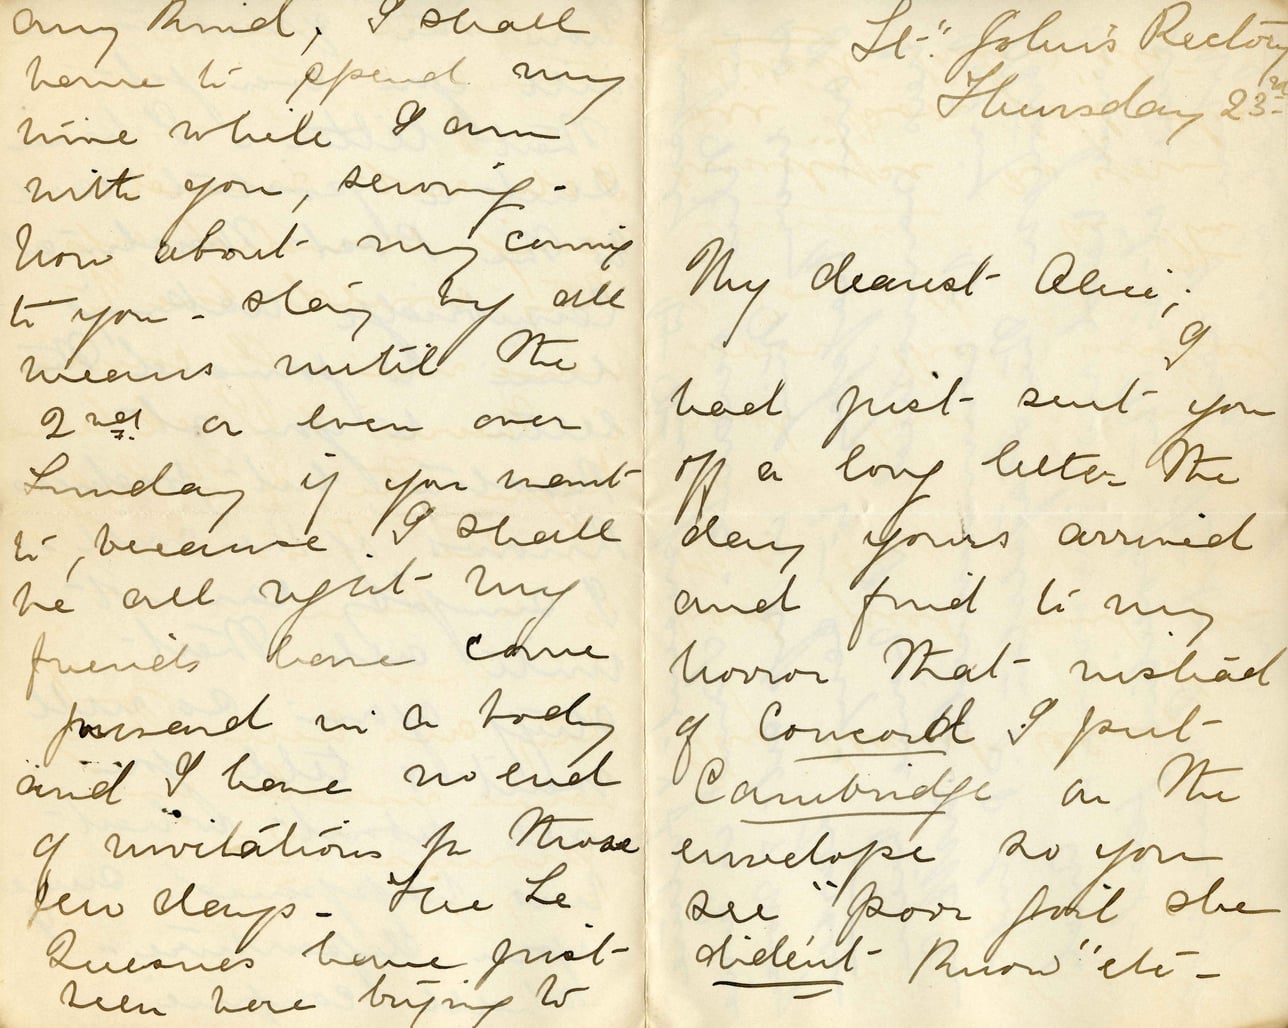 any Kind, I shall
have to spend my
time while I am
with you, sewing -
now about my coming
to you - stay by all
means until the
2nd. or even over
Sunday if you want
to, because I shall
be all right my
friends have come
forward in a body
and I have no end
of invitations for those
few days - The Le
Quesnes have just
been here trying to
St. John's Rectory
Thursday 23rd
My dearest Alice;
I
had just sent you
off a long letter the
day yours arrived
and find to my
horror that instead
of Concord I put
Cambridge on the
envelope so you
see "poor she
dident Know" etc -